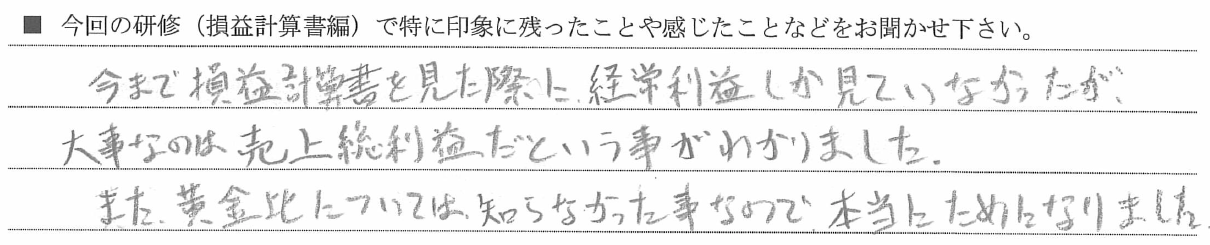 ■ 今回の研修（損益計算書編）で特に印象に残ったことや感じたことなどをお聞かせ下さい。
今まで損益計算書を見た際に、経常利益しか見ていなかったが、
大事なのは売上総利益だという事がわかりました。
また、黄金比については、知らなかった事なので、本当にためになりました。